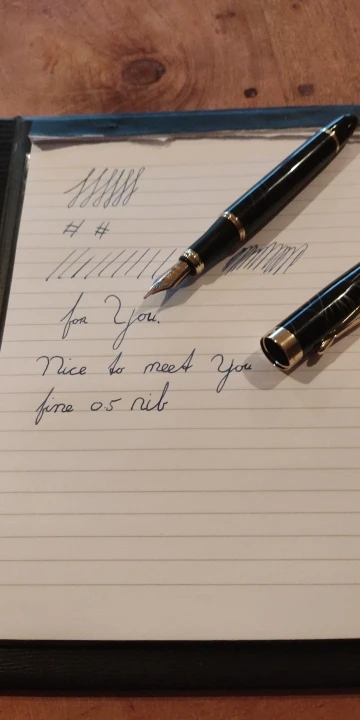 # #
for You.
Nice to meet You
fine 0.5 nib